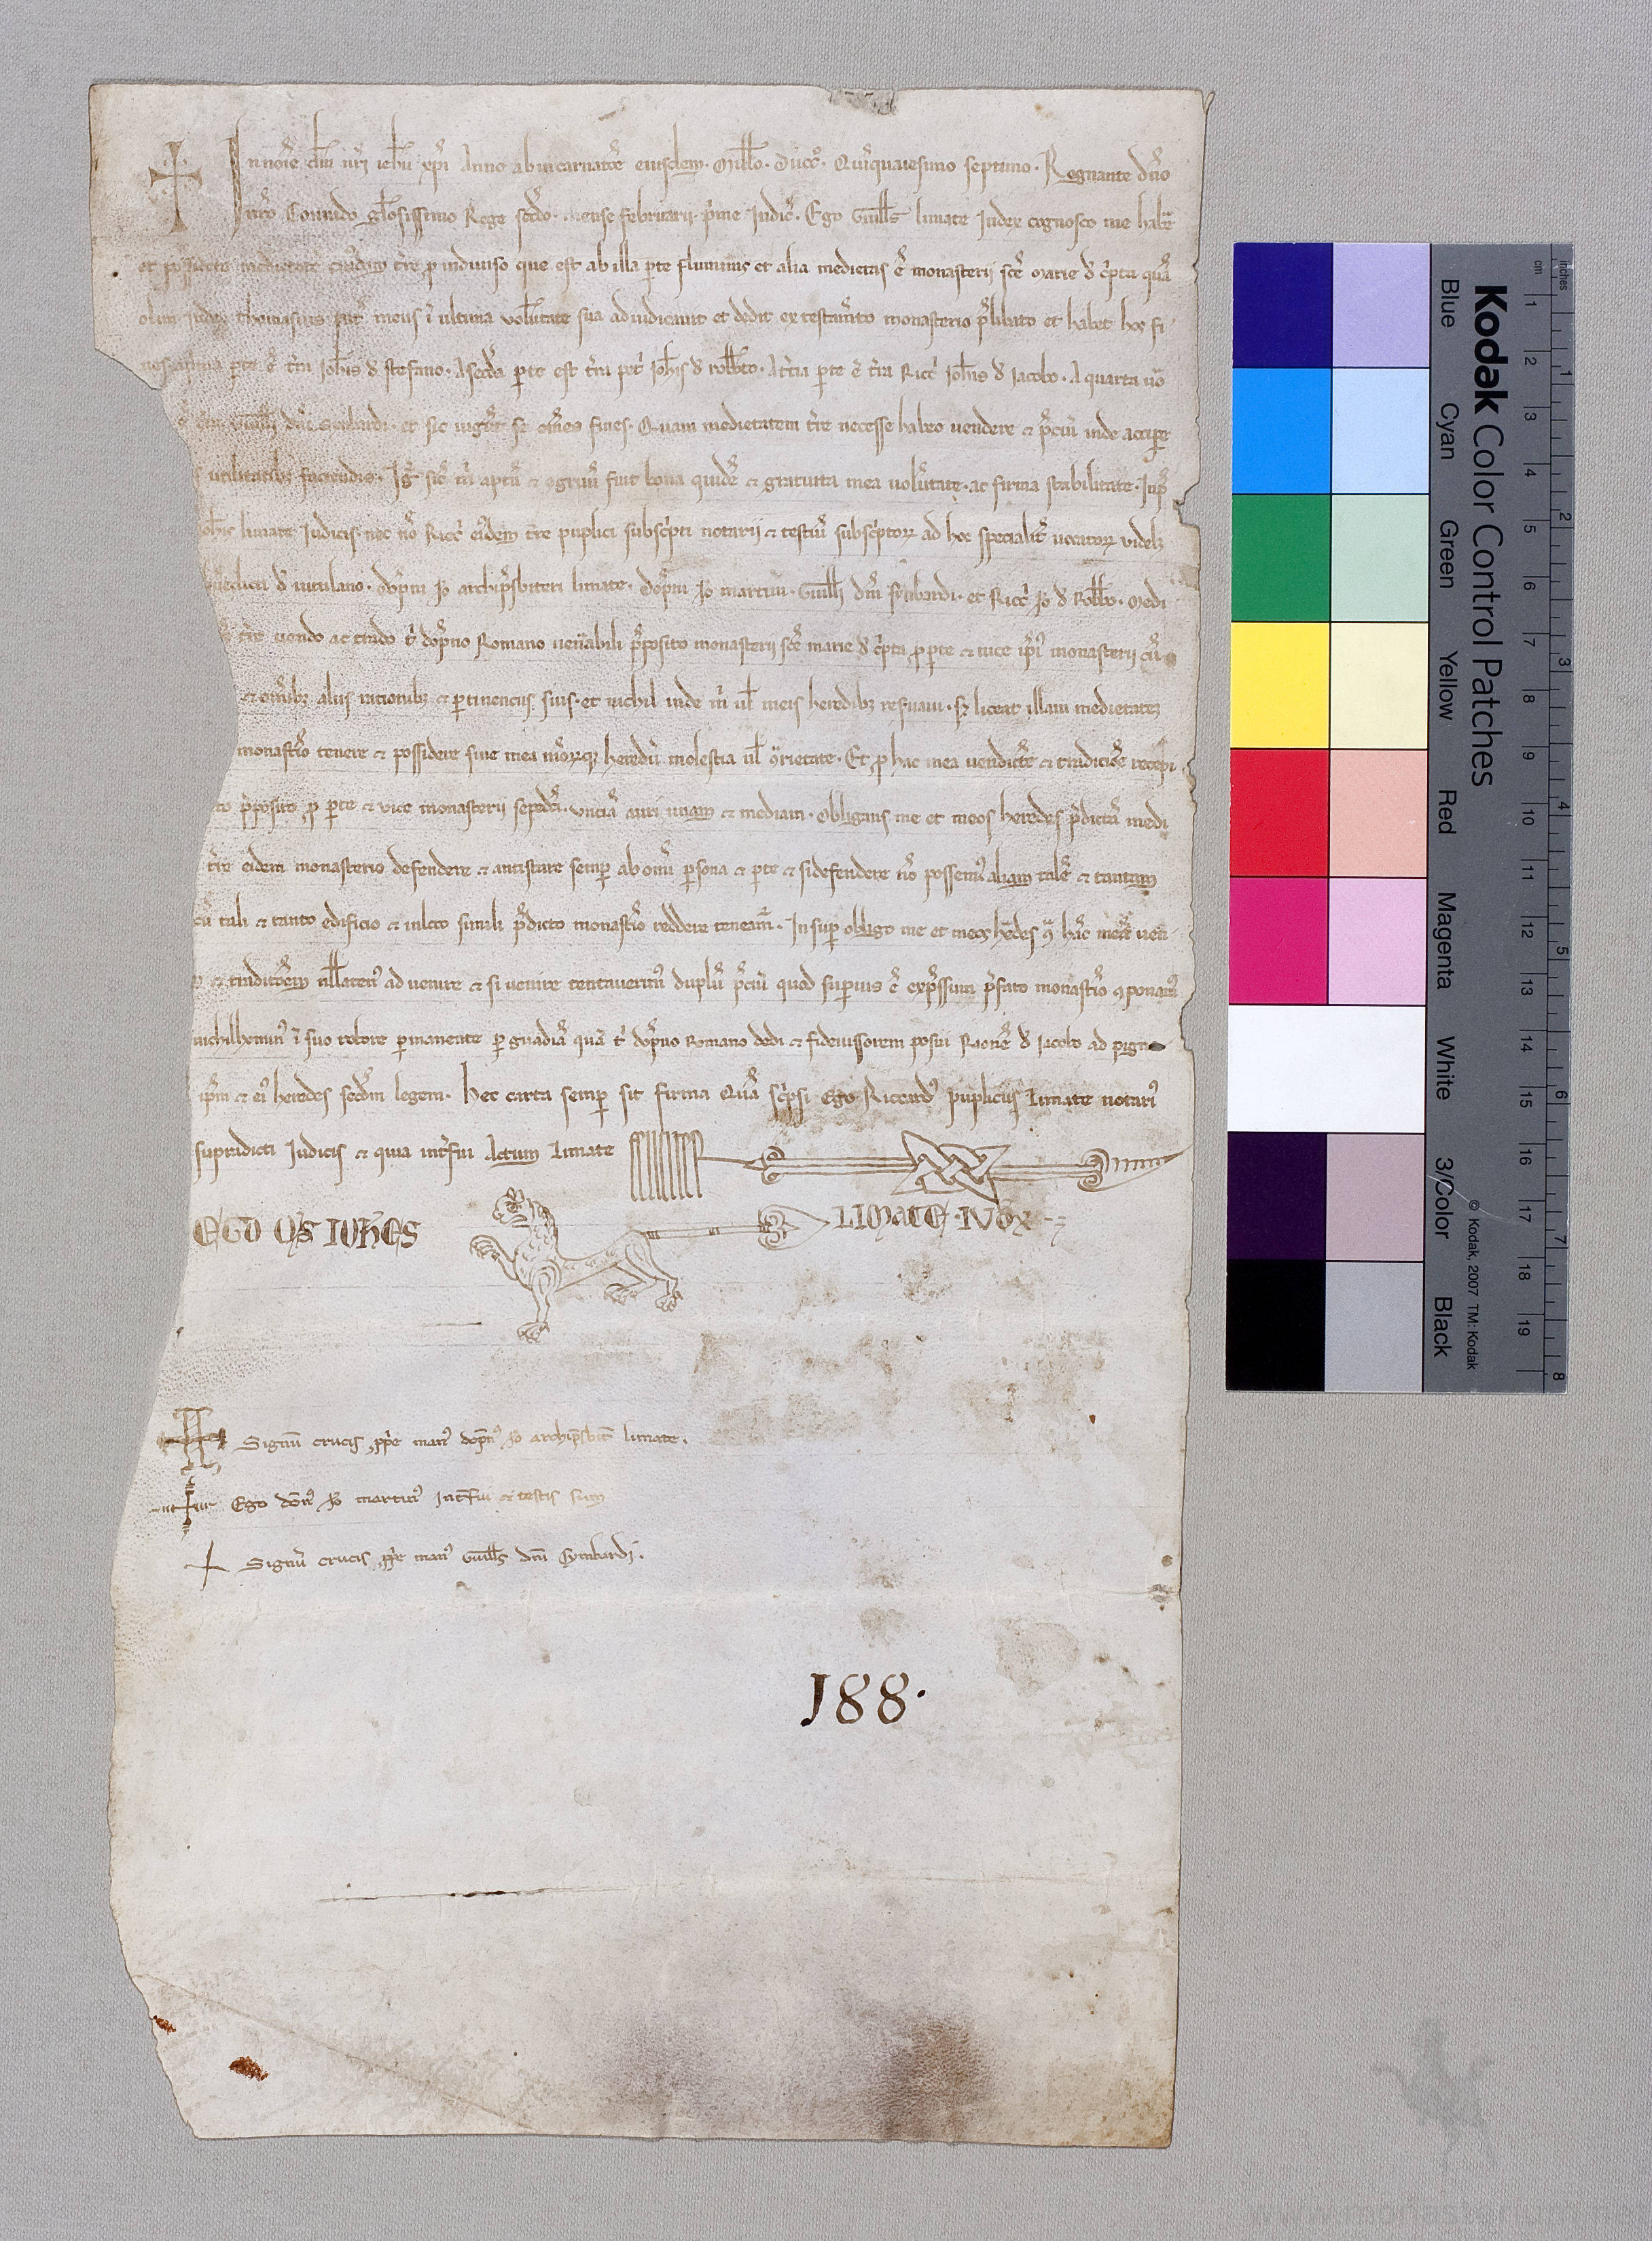 In noīe dn̄i nr̄i ieh̄u xp̄i Anno ab incarnatōe eiusdem. Mill̄o. Ducēō. Quīquaiesimo septimo. Regnante dn̄o
nr̄o Corrado gl̄osissimo Rege scdo. mense februarii. p̄me Indic̄. Ego Guill̄s limate Iudex cognosco me habe
et possidere medietatē tr̄e p indiuiso que est ab illa p̱te fluminis et alia medietas ē monasterii sc̄e Marie d̄ c̄pta quā
olim Iudex thomasius pat̄ meus ī ultima volūtate sua adiudicauit et dedit ex testam̄to monasterio p̄libato et habet hos fi
p̱te ē tr̄a Ioh̄is d̄ stefano. A secda p̱te est tr̄a Ioh̄is d̄ rob̄to. A tc̄ia p̱te ē tr̄a Ricc̄ Ioh̄is d̄ Iacobo. A quarta uō
et sic iugūt se om̄es fines. Quam medietatem tr̄e necesse habeo uendere et p̄ciū inde accipe
utilitatibꝫ faciendis. Ig̅ sic̄ m̄ aptū et ogruū fuit bona quidē et gratuita mea uolūtate. ac firma stabilitate. Inp̄
limate Iudicis. nec nō Ricc̄ eidem tr̄e puplici subsc̄pti notarii et testiū subsc̄ptoꝝ ad hoc specialit̄ uocatoꝝ videlꝫ
d̄ uitulano. dop̄ni Io archip̄sbiteri limate. Dop̄ni Io martini. Guill̄i dn̄i synbardi. et Ricc̄ Io d̄ Rob̄to. Medi
tr̄e uendo ac trado t̄ dop̄no Romano uen̄abili p̄posito monasterii sc̄e marie d̄ c̄pta p p̱te et uice ip̄i monasterii cū
et om̄ibꝫ aliis rationibꝫ et p̱tinenciis suis. et nichil inde m̄ ul̄ meis heredibꝫ res̄uaui. sꝫ liceat illam medietatē
monast̄io tenere et possidere sine mea m̄orꝗꝫ heredū molestia ul̄ ꝯrietate. Et p hac mea uendic̄oē et tradic̄oē recepi
to p̄posito p p̱te et vice monasterii sepedc̄i. unciā auri unam et mediam. Obligans me et meos heredes p̄dictā medi
tr̄e eidem monasterio defendere et antistare semp̱ ab om̄i p̱sona et p̱te et si defendere nō possem̄ aliam talē et tantam
cū tali et tanto edificio et in loco simili p̄dicto monast̄io reddere teneam̄. Insup̱ obligo me et meos h̄edes ꝯ hāc meā uen
et traditōem null̄aten̄ aduenire et si uenire tentauerim̄ duplū p̄ciū quod sup̱ius ē exp̄ssum p̄fato monast̄io ꝯponam̄
nichilhomin̄ ī suo robore p̱manente p̱ guadiā quā t̄ dop̄no Romano dedi et fideiussorem posui Raonē d̄ Iacobo ad pign
ip̄m et ei heredes scd̄m legem. Hec carta semp̱ sit firma Quā sc̄psi Ego Riccard̄ puplicus limate notari
supradicti Iudicis et quia int̄fui Actum limate
EGO Q̄S IOH̄ES LIMATE. IVDX
Signū crucis p̱p̄e man̄ dop̄n̄ Io archip̄sbit̄ limate.
Ego don̄ Io martin̄ int̄fui et testis sum
Signū crucis p̱p̄e man̄ Guill̄s dn̄i Symbardi.
188.
Kodak Color Control Patches
Blue Cyan Green Yellow Red Magenta White 3/Color Black
© Kodak, 2007 TM: Kodak
inches 1 2 3 4 5 6 7 8
cm 1 2 3 4 5 6 7 8 9 10 11 12 13 14 15 16 17 18 19